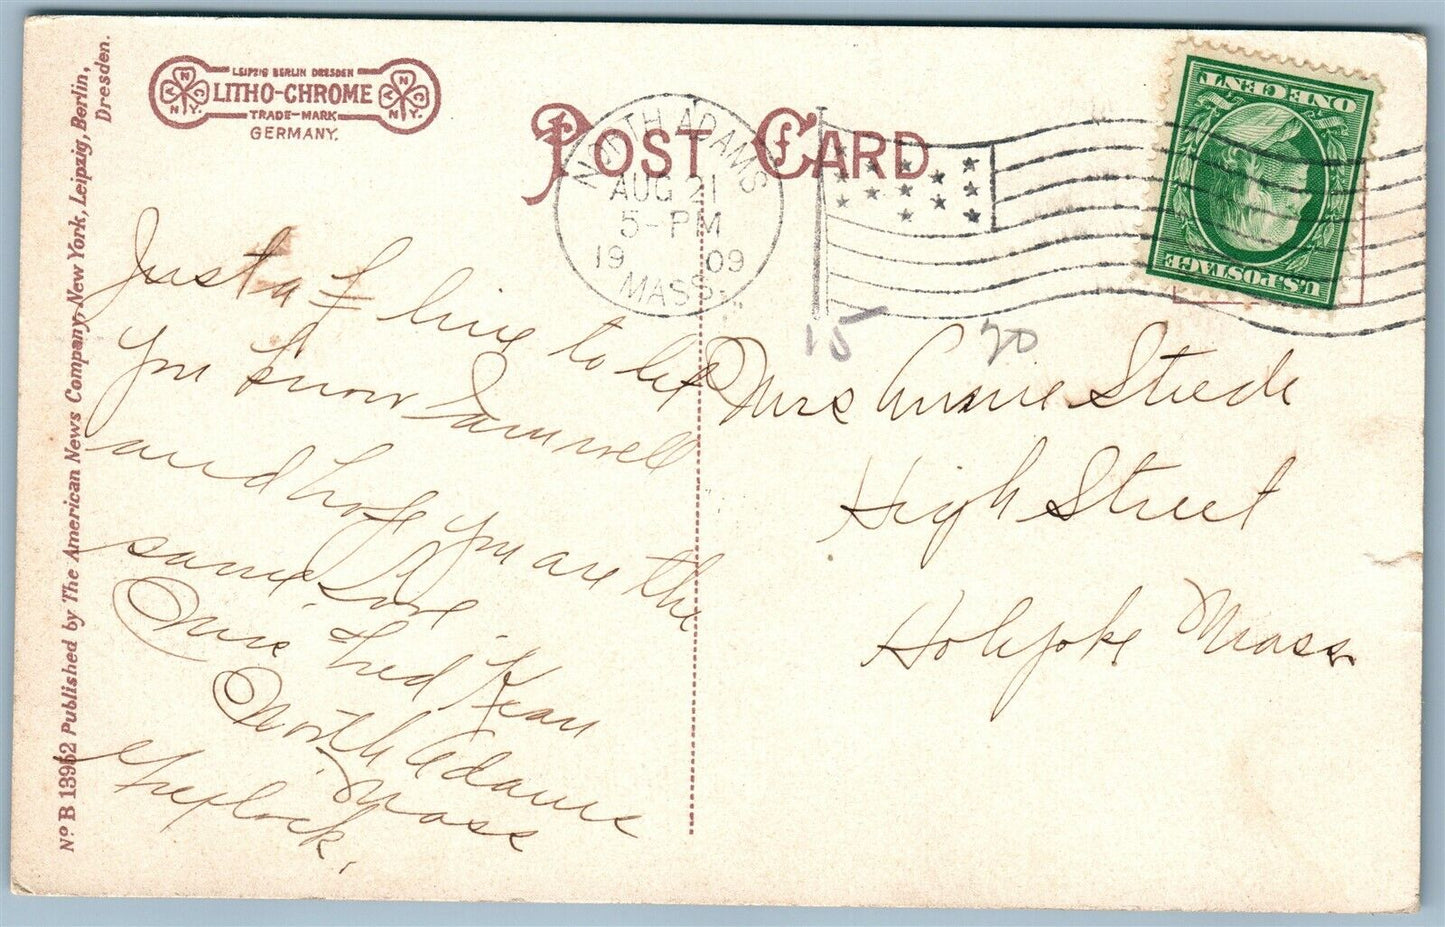 Nº B 13952 Published by The American News Company, New York, Leipzig, Berlin,
Dresden.
LEIPZIG BERLIN DRESDEN
LITHO-CHROME
TRADE-MARK
GERMANY.
A N C
N.Y.
A N C
N.Y.
POST CARD
NORTH ADAMS
AUG 21
5-PM
19 09
MASS.
U.S. POSTAGE
ONE CENT
15
20
Just a line to let
you know I am well
and hope you are the
same.
Mrs Fred Kean
North Adams
Mass
Mrs Annie Steede
High Street
Holyoke Mass